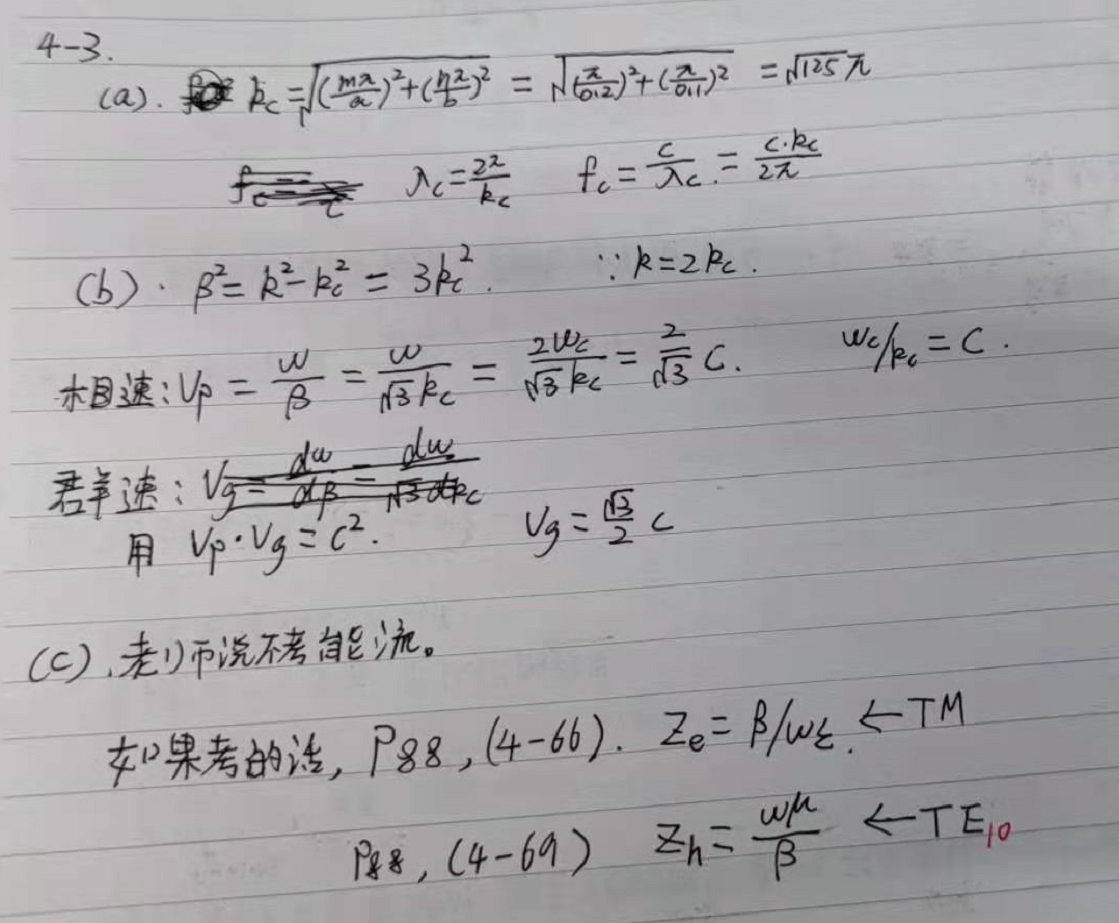 4-3.
(a). k_c = √((mπ/a)²+(nπ/b)²) = √((π/0.2)²+(π/0.1)²) = √125 π
λ_c = 2π/k_c f_c = c/λ_c = c·k_c/2π
(b). β² = k²-k_c² = 3k_c². ∵ k=2k_c.
相速: V_p = ω/β = ω/√3k_c = 2ω_c/√3k_c = 2/√3 C. ω_c/k_c = C.
群速: V_g = dω/dβ = dω/√3dk_c
用 V_p·V_g = c². V_g = √3/2 c
(c). 老师说不考能流。
如果考的话, P88, (4-66). Z_e = β/ωε. ← TM
P88, (4-69) Z_h = ωμ/β ← TE₁₀